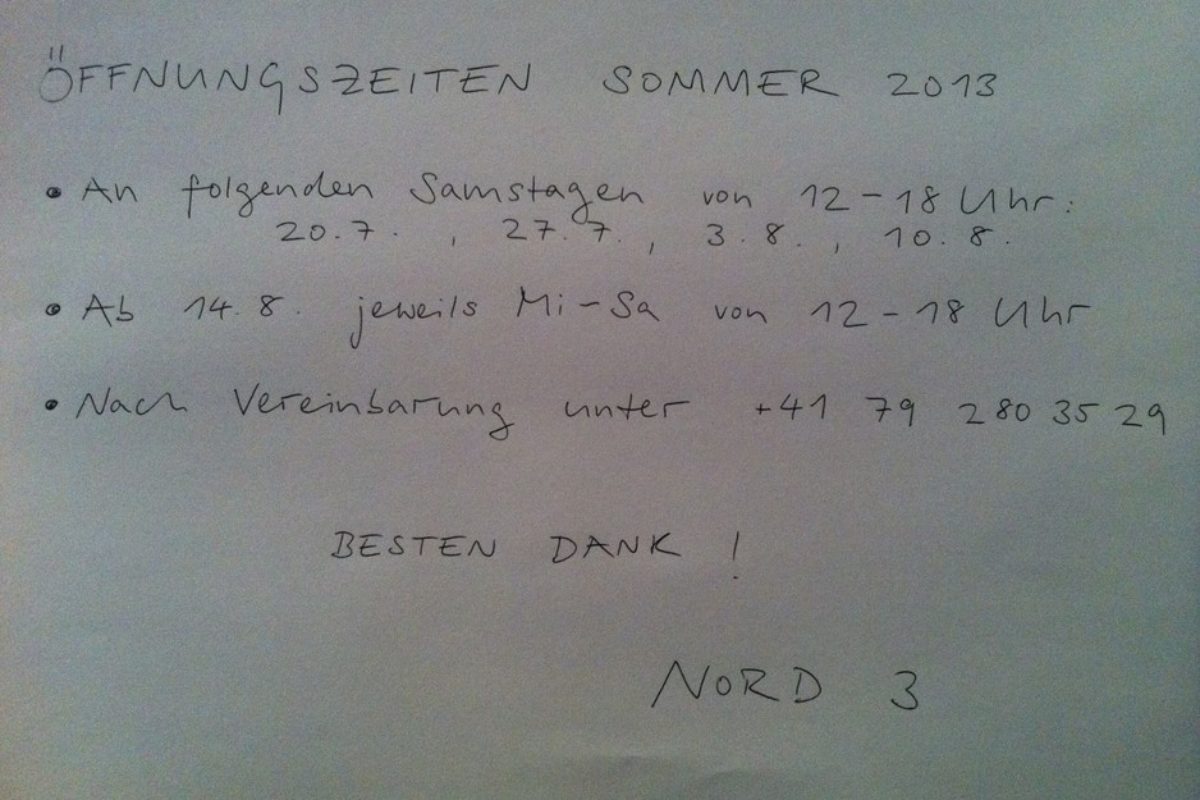 ÖFFNUNGSZEITEN SOMMER 2013
• An folgenden Samstagen von 12-18 Uhr:
20.7. , 27.7. , 3.8. , 10.8.
• Ab 14.8. jeweils Mi-Sa von 12-18 Uhr
• Nach Vereinbarung unter +41 79 280 35 29
BESTEN DANK !
NORD 3